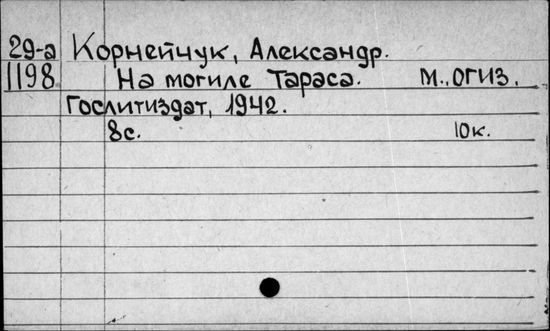 29-а Корнейчук, Александр.
1198 На могиле Тараса. М., ОГИЗ.
Гослитиздат, 1942.
8с. 10к.